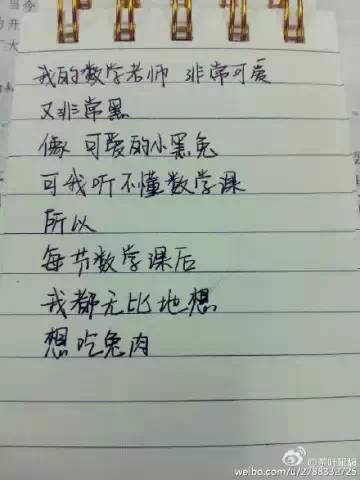 我的数学老师 非常可爱
又非常黑
像 可爱的小黑兔
可我听不懂数学课
所以
每节数学课后
我都无比地想
想吃兔肉
weibo.com/u/2788332725